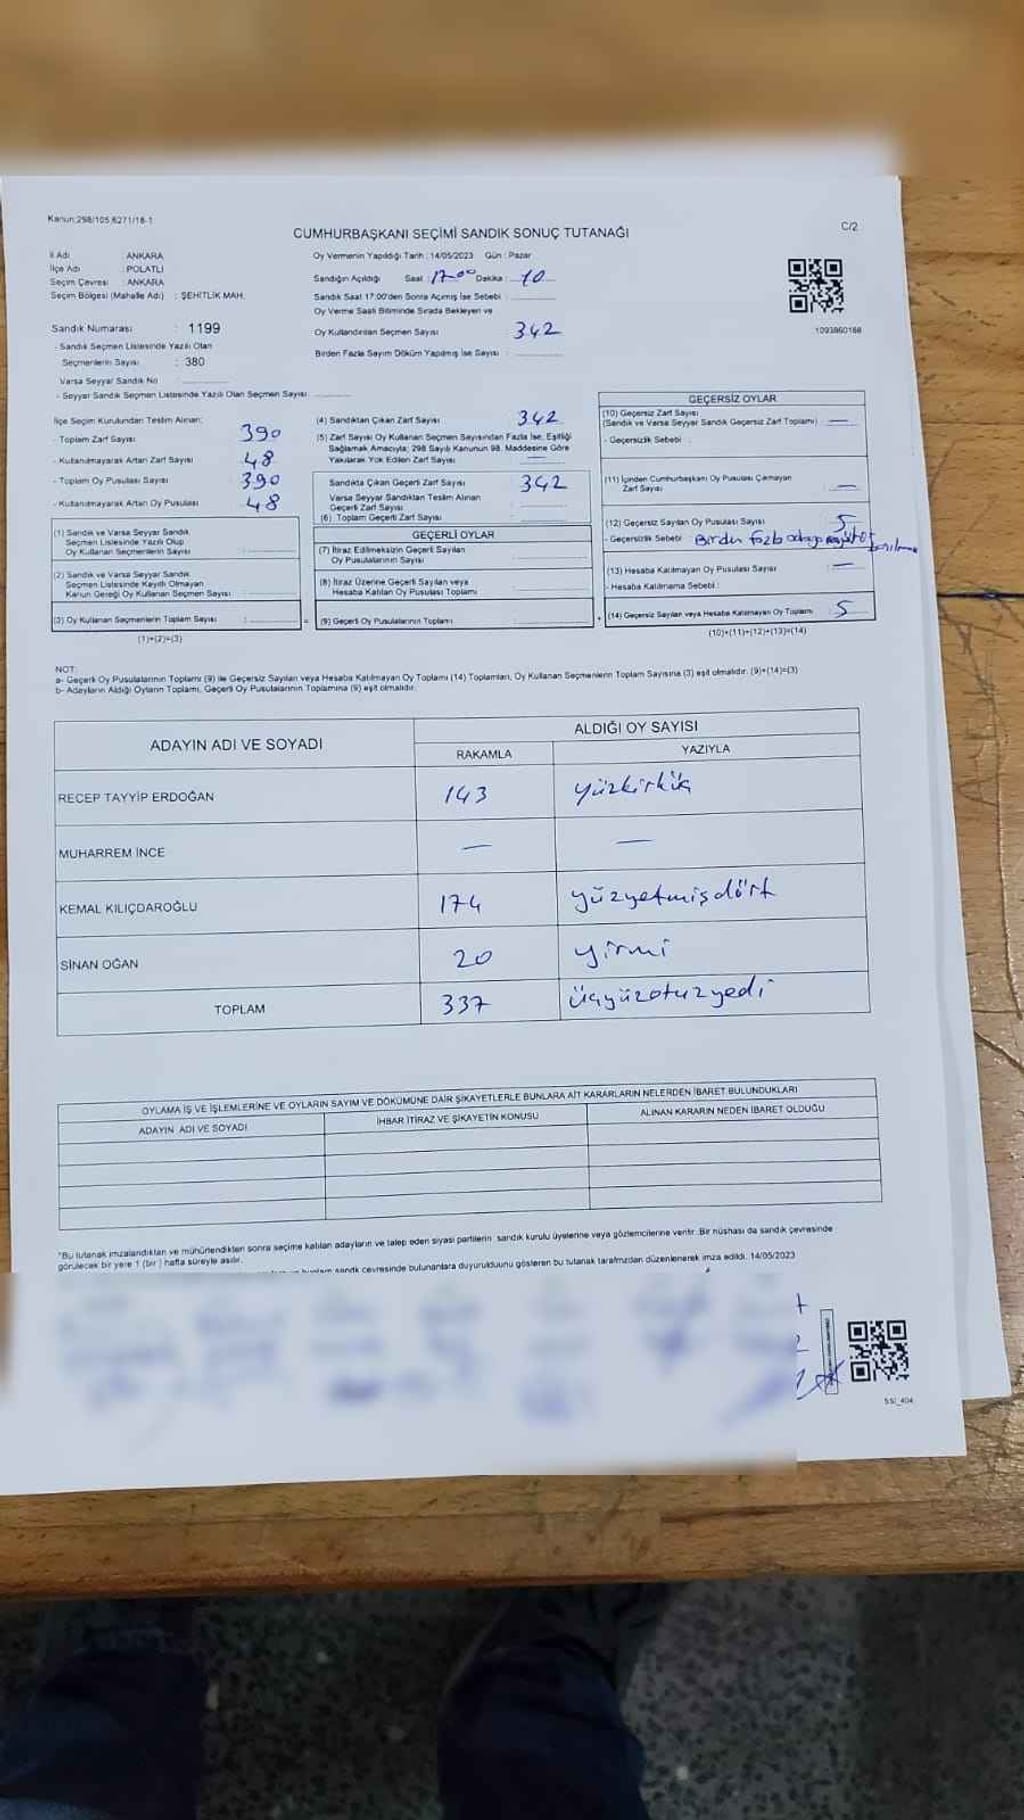 Kanun:298/105 6271/18-1
C/2
CUMHURBAŞKANI SEÇİMİ SANDIK SONUÇ TUTANAĞI
İl Adı ANKARA
İlçe Adı : POLATLI
Seçim Çevresi : ANKARA
Seçim Bölgesi (Mahalle Adı) : ŞEHİTLİK MAH.
Sandık Numarası : 1199
- Sandık Seçmen Listesinde Yazılı Olan
Seçmenlerin Sayısı : 380
Varsa Seyyar Sandık No
- Seyyar Sandık Seçmen Listesinde Yazılı Olan Seçmen Sayısı
Oy Vermenin Yapıldığı Tarih : 14/05/2023 Gün : Pazar
Sandığın Açıldığı Saat : 17.00 Dakika : 10
Sandık Saat 17:00'den Sonra Açılmış İse Sebebi
Oy Verme Saati Bitiminde Sırada Bekleyen ve
Oy Kullandırılan Seçmen Sayısı 342
Birden Fazla Sayım Döküm Yapılmış İse Sayısı
1093960168
İlçe Seçim Kurulundan Teslim Alınan:
- Toplam Zarf Sayısı 390
- Kullanılmayarak Artan Zarf Sayısı 48
- Toplam Oy Pusulası Sayısı 390
- Kullanılmayarak Artan Oy Pusulası 48
(1) Sandık ve Varsa Seyyar Sandık
Seçmen Listesinde Yazılı Olup
Oy Kullanan Seçmenlerin Sayısı :
(2) Sandık ve Varsa Seyyar Sandık
Seçmen Listesinde Kayıtlı Olmayan
Kanun Gereği Oy Kullanan Seçmen Sayısı :
(3) Oy Kullanan Seçmenlerin Toplam Sayısı :
(1)+(2)=(3)
(4) Sandıktan Çıkan Zarf Sayısı 342
(5) Zarf Sayısı Oy Kullanan Seçmen Sayısından Fazla İse; Eşitliği
Sağlamak Amacıyla; 298 Sayılı Kanunun 98. Maddesine Göre
Yakılarak Yok Edilen Zarf Sayısı —
Sandıkta Çıkan Geçerli Zarf Sayısı 342
Varsa Seyyar Sandıktan Teslim Alınan
Geçerli Zarf Sayısı
(6) Toplam Geçerli Zarf Sayısı
GEÇERLİ OYLAR
(7) İtiraz Edilmeksizin Geçerli Sayılan
Oy Pusulalarının Sayısı
(8) İtiraz Üzerine Geçerli Sayılan veya
Hesaba Katılan Oy Pusulası Toplamı
= (9) Geçerli Oy Pusulalarının Toplamı
GEÇERSİZ OYLAR
(10) Geçersiz Zarf Sayısı
(Sandık ve Varsa Seyyar Sandık Geçersiz Zarf Toplamı) —
- Geçersizlik Sebebi
(11) İçinden Cumhurbaşkanı Oy Pusulası Çıkmayan
Zarf Sayısı —
(12) Geçersiz Sayılan Oy Pusulası Sayısı 5
- Geçersizlik Sebebi Birden fazla adaya
(13) Hesaba Katılmayan Oy Pusulası Sayısı —
- Hesaba Katılmama Sebebi :
+ (14) Geçersiz Sayılan veya Hesaba Katılmayan Oy Toplamı 5
(10)+(11)+(12)+(13)=(14)
NOT:
a- Geçerli Oy Pusulalarının Toplamı (9) ile Geçersiz Sayılan veya Hesaba Katılmayan Oy Toplamı (14) Toplamları, Oy Kullanan Seçmenlerin Toplam Sayısına (3) eşit olmalıdır. (9)+(14)=(3)
b- Adayların Aldığı Oyların Toplamı, Geçerli Oy Pusulalarının Toplamına (9) eşit olmalıdır.
ADAYIN ADI VE SOYADI
ALDIĞI OY SAYISI
RAKAMLA YAZIYLA
RECEP TAYYİP ERDOĞAN 143
MUHARREM İNCE — —
KEMAL KILIÇDAROĞLU 174 yüzyetmişdört
SİNAN OĞAN 20 yirmi
TOPLAM 337 üçyüzotuzyedi
OYLAMA İŞ VE İŞLEMLERİNE VE OYLARIN SAYIM VE DÖKÜMÜNE DAİR ŞİKAYETLERLE BUNLARA AİT KARARLARIN NELERDEN İBARET BULUNDUKLARI
ADAYIN ADI VE SOYADI İHBAR İTİRAZ VE ŞİKAYETİN KONUSU ALINAN KARARIN NEDEN İBARET OLDUĞU
*Bu tutanak imzalandıktan ve mühürlendikten sonra seçime katılan adayların ve talep eden siyasi partilerin sandık kurulu üyelerine veya gözlemcilerine verilir. Bir nüshası da sandık çevresinde
görülecek bir yere 1 (bir) hafta süreyle asılır.
sandık çevresinde bulunanlara duyurulduğunu gösteren bu tutanak tarafımızdan düzenlenerek imza edildi. 14/05/2023
SSI_404